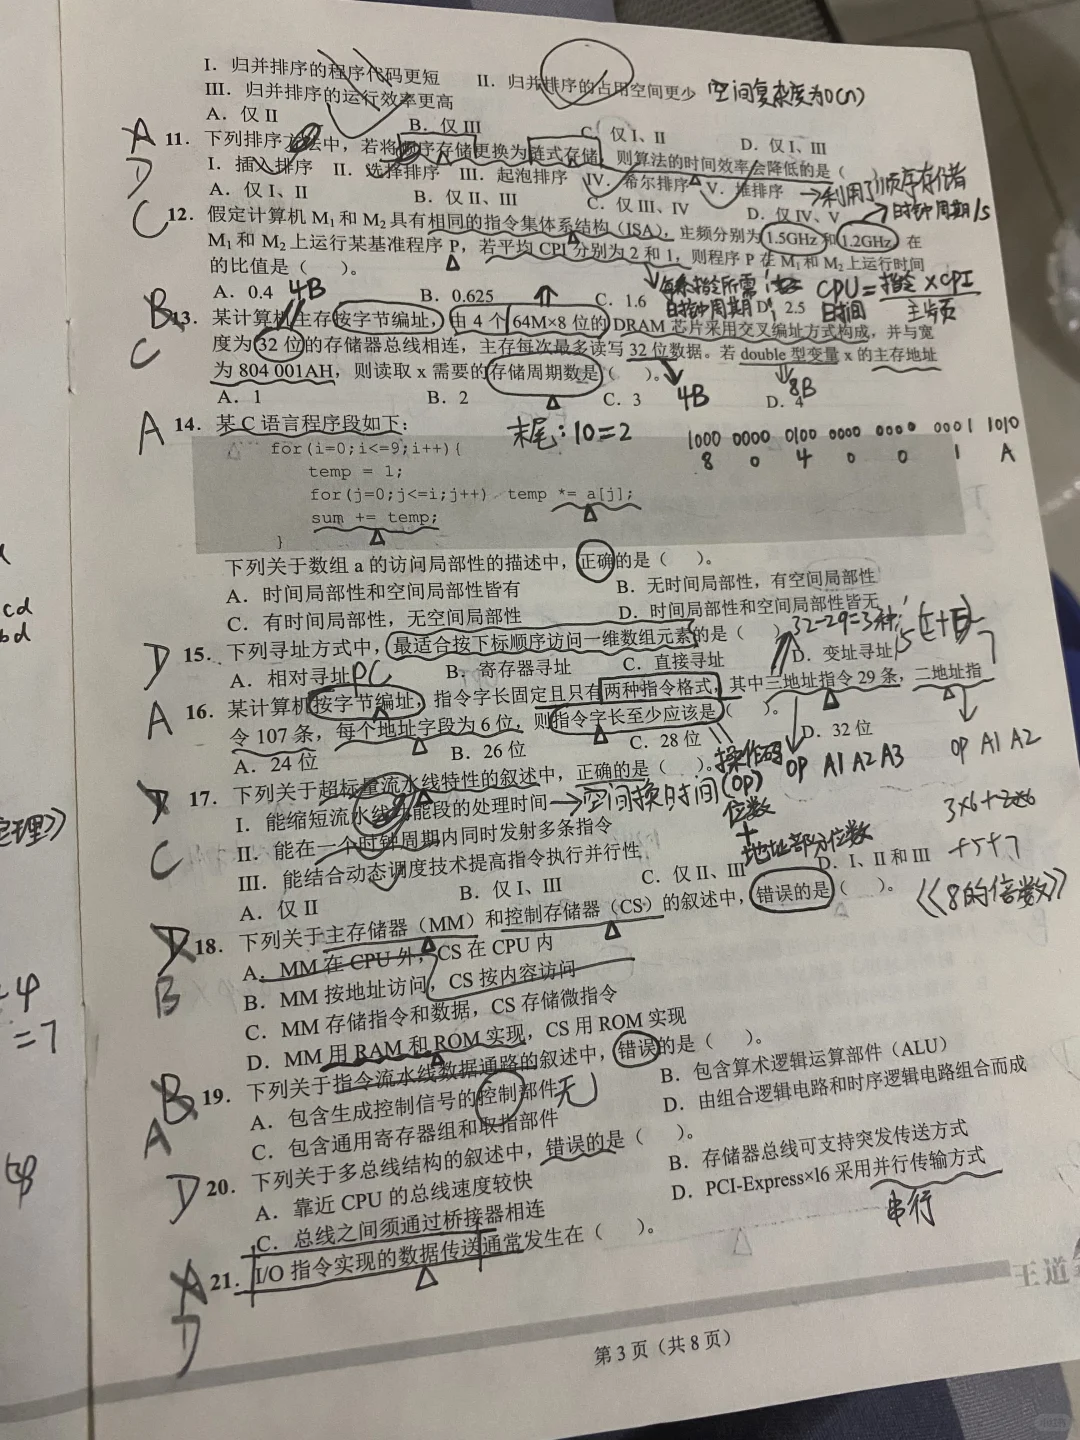 I. 归并排序的程序代码更短 II. 归并排序的占用空间更少 空间复杂度为O(n)
III. 归并排序的运行效率更高
A. 仅 II B. 仅 III C. 仅 I、II D. 仅 I、III
A 11. 下列排序方法中，若将顺序存储更换为链式存储，则算法的时间效率会降低的是（
D I. 插入排序 II. 选择排序 III. 起泡排序 IV. 希尔排序 V. 堆排序 →利用了顺序存储
A. 仅 I、II B. 仅 II、III C. 仅 III、IV D. 仅 IV、V
C 12. 假定计算机 M₁ 和 M₂ 具有相同的指令集体系结构（ISA），主频分别为 1.5GHz 和 1.2GHz 在 →时钟周期/s
M₁ 和 M₂ 上运行某基准程序 P，若平均 CPI 分别为 2 和 1，则程序 P 在 M₁ 和 M₂ 上运行时间
的比值是（ ）。
每条指令所需时钟周期
CPU时间=指令×CPI/主频
A. 0.4 B. 0.625 C. 1.6 D. 2.5
4B
B 13. 某计算机主存按字节编址，由 4 个 64M×8 位的 DRAM 芯片采用交叉编址方式构成，并与宽
C 度为 32 位的存储器总线相连，主存每次最多读写 32 位数据。若 double 型变量 x 的主存地址
为 804 001AH，则读取 x 需要的存储周期数是（ ）。 4B 8B
A. 1 B. 2 C. 3 D. 4
A 14. 某 C 语言程序段如下： 末尾：10=2 1000 0000 0100 0000 0000 0001 1010
8 0 4 0 0 1 A
for(i=0;i<=9;i++){
temp = 1;
for(j=0;j<=i;j++) temp *= a[j];
sum += temp;
}
下列关于数组 a 的访问局部性的描述中，正确的是（ ）。
A. 时间局部性和空间局部性皆有 B. 无时间局部性，有空间局部性
C. 有时间局部性，无空间局部性 D. 时间局部性和空间局部性皆无
32-29=3种
D 15. 下列寻址方式中，最适合按下标顺序访问一维数组元素的是（
A. 相对寻址PC B. 寄存器寻址 C. 直接寻址 D. 变址寻址
A 16. 某计算机按字节编址，指令字长固定且只有两种指令格式，其中三地址指令 29 条，二地址指
令 107 条，每个地址字段为 6 位，则指令字长至少应该是（ ）。
A. 24 位 B. 26 位 C. 28 位 D. 32 位
操作码(OP)位数+地址部分位数
OP A1 A2 A3
OP A1 A2
17. 下列关于超标量流水线特性的叙述中，正确的是（ ）。
C I. 能缩短流水线功能段的处理时间→空间换时间
II. 能在一个时钟周期内同时发射多条指令
III. 能结合动态调度技术提高指令执行并行性
A. 仅 II B. 仅 I、III C. 仅 II、III D. I、II 和 III
+5+7
《8的倍数》
D 18. 下列关于主存储器（MM）和控制存储器（CS）的叙述中，错误的是（ ）。
A. MM 在 CPU 外，CS 在 CPU 内
B B. MM 按地址访问，CS 按内容访问
C. MM 存储指令和数据，CS 存储微指令
D. MM 用 RAM 和 ROM 实现，CS 用 ROM 实现
B 19. 下列关于指令流水线数据通路的叙述中，错误的是（ ）。
A. 包含生成控制信号的控制部件 无 B. 包含算术逻辑运算部件（ALU）
A C. 包含通用寄存器组和取指部件 D. 由组合逻辑电路和时序逻辑电路组合而成
D 20. 下列关于多总线结构的叙述中，错误的是（ ）。
A. 靠近 CPU 的总线速度较快 B. 存储器总线可支持突发传送方式
C. 总线之间须通过桥接器相连 D. PCI-Express×16 采用并行传输方式
串行
A 21. I/O 指令实现的数据传送通常发生在（ ）。
D
王道
第 3 页（共 8 页）
cd
bd
定理》
=7